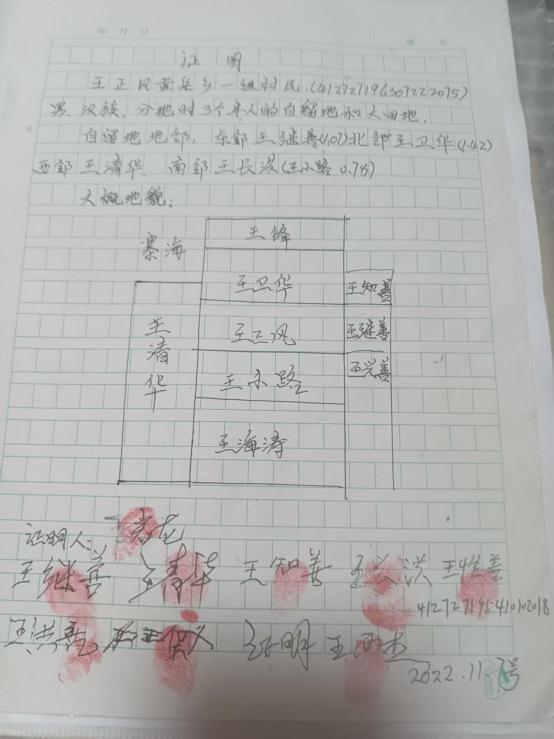 年 月 日
第 页
证 明
王正风黄集乡一组村民,(412727196307222075)
男,汉族,分地时3个半人的自留地和大田地,
自留地地邻,东邻王继善(1.07)北邻王卫华(1.42)
西邻王清华,南邻王长洪(王小路 0.78)
大概地貌:
寨海
王锋
王卫华
王知善
王清华
王正风
王继善
王小路
王兴善
王海涛
证明人:
王继善 王清华 王知善 王义洪 王继善
412727195410102018
王洪亮 证明 王西杰
2022.11.7号